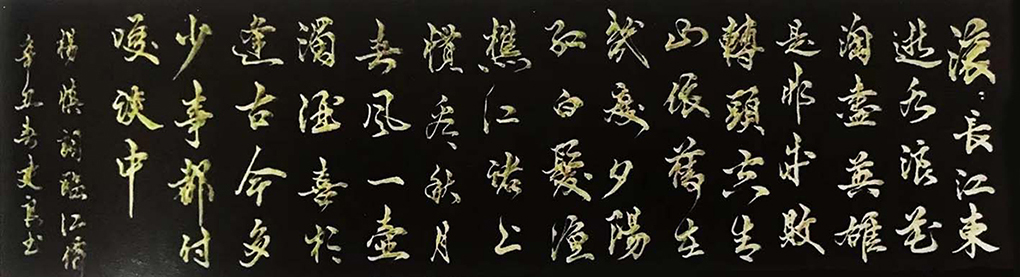 滚〻長江東
逝水浪花
淘盡英雄
是非成敗
轉頭空青
山依舊在
幾度夕陽
紅白髮漁
樵江渚上
慣看秋月
春風一壺
濁酒喜相
逢古今多
少事都付
笑談中
楊慎詞臨江僊
辛丑春史